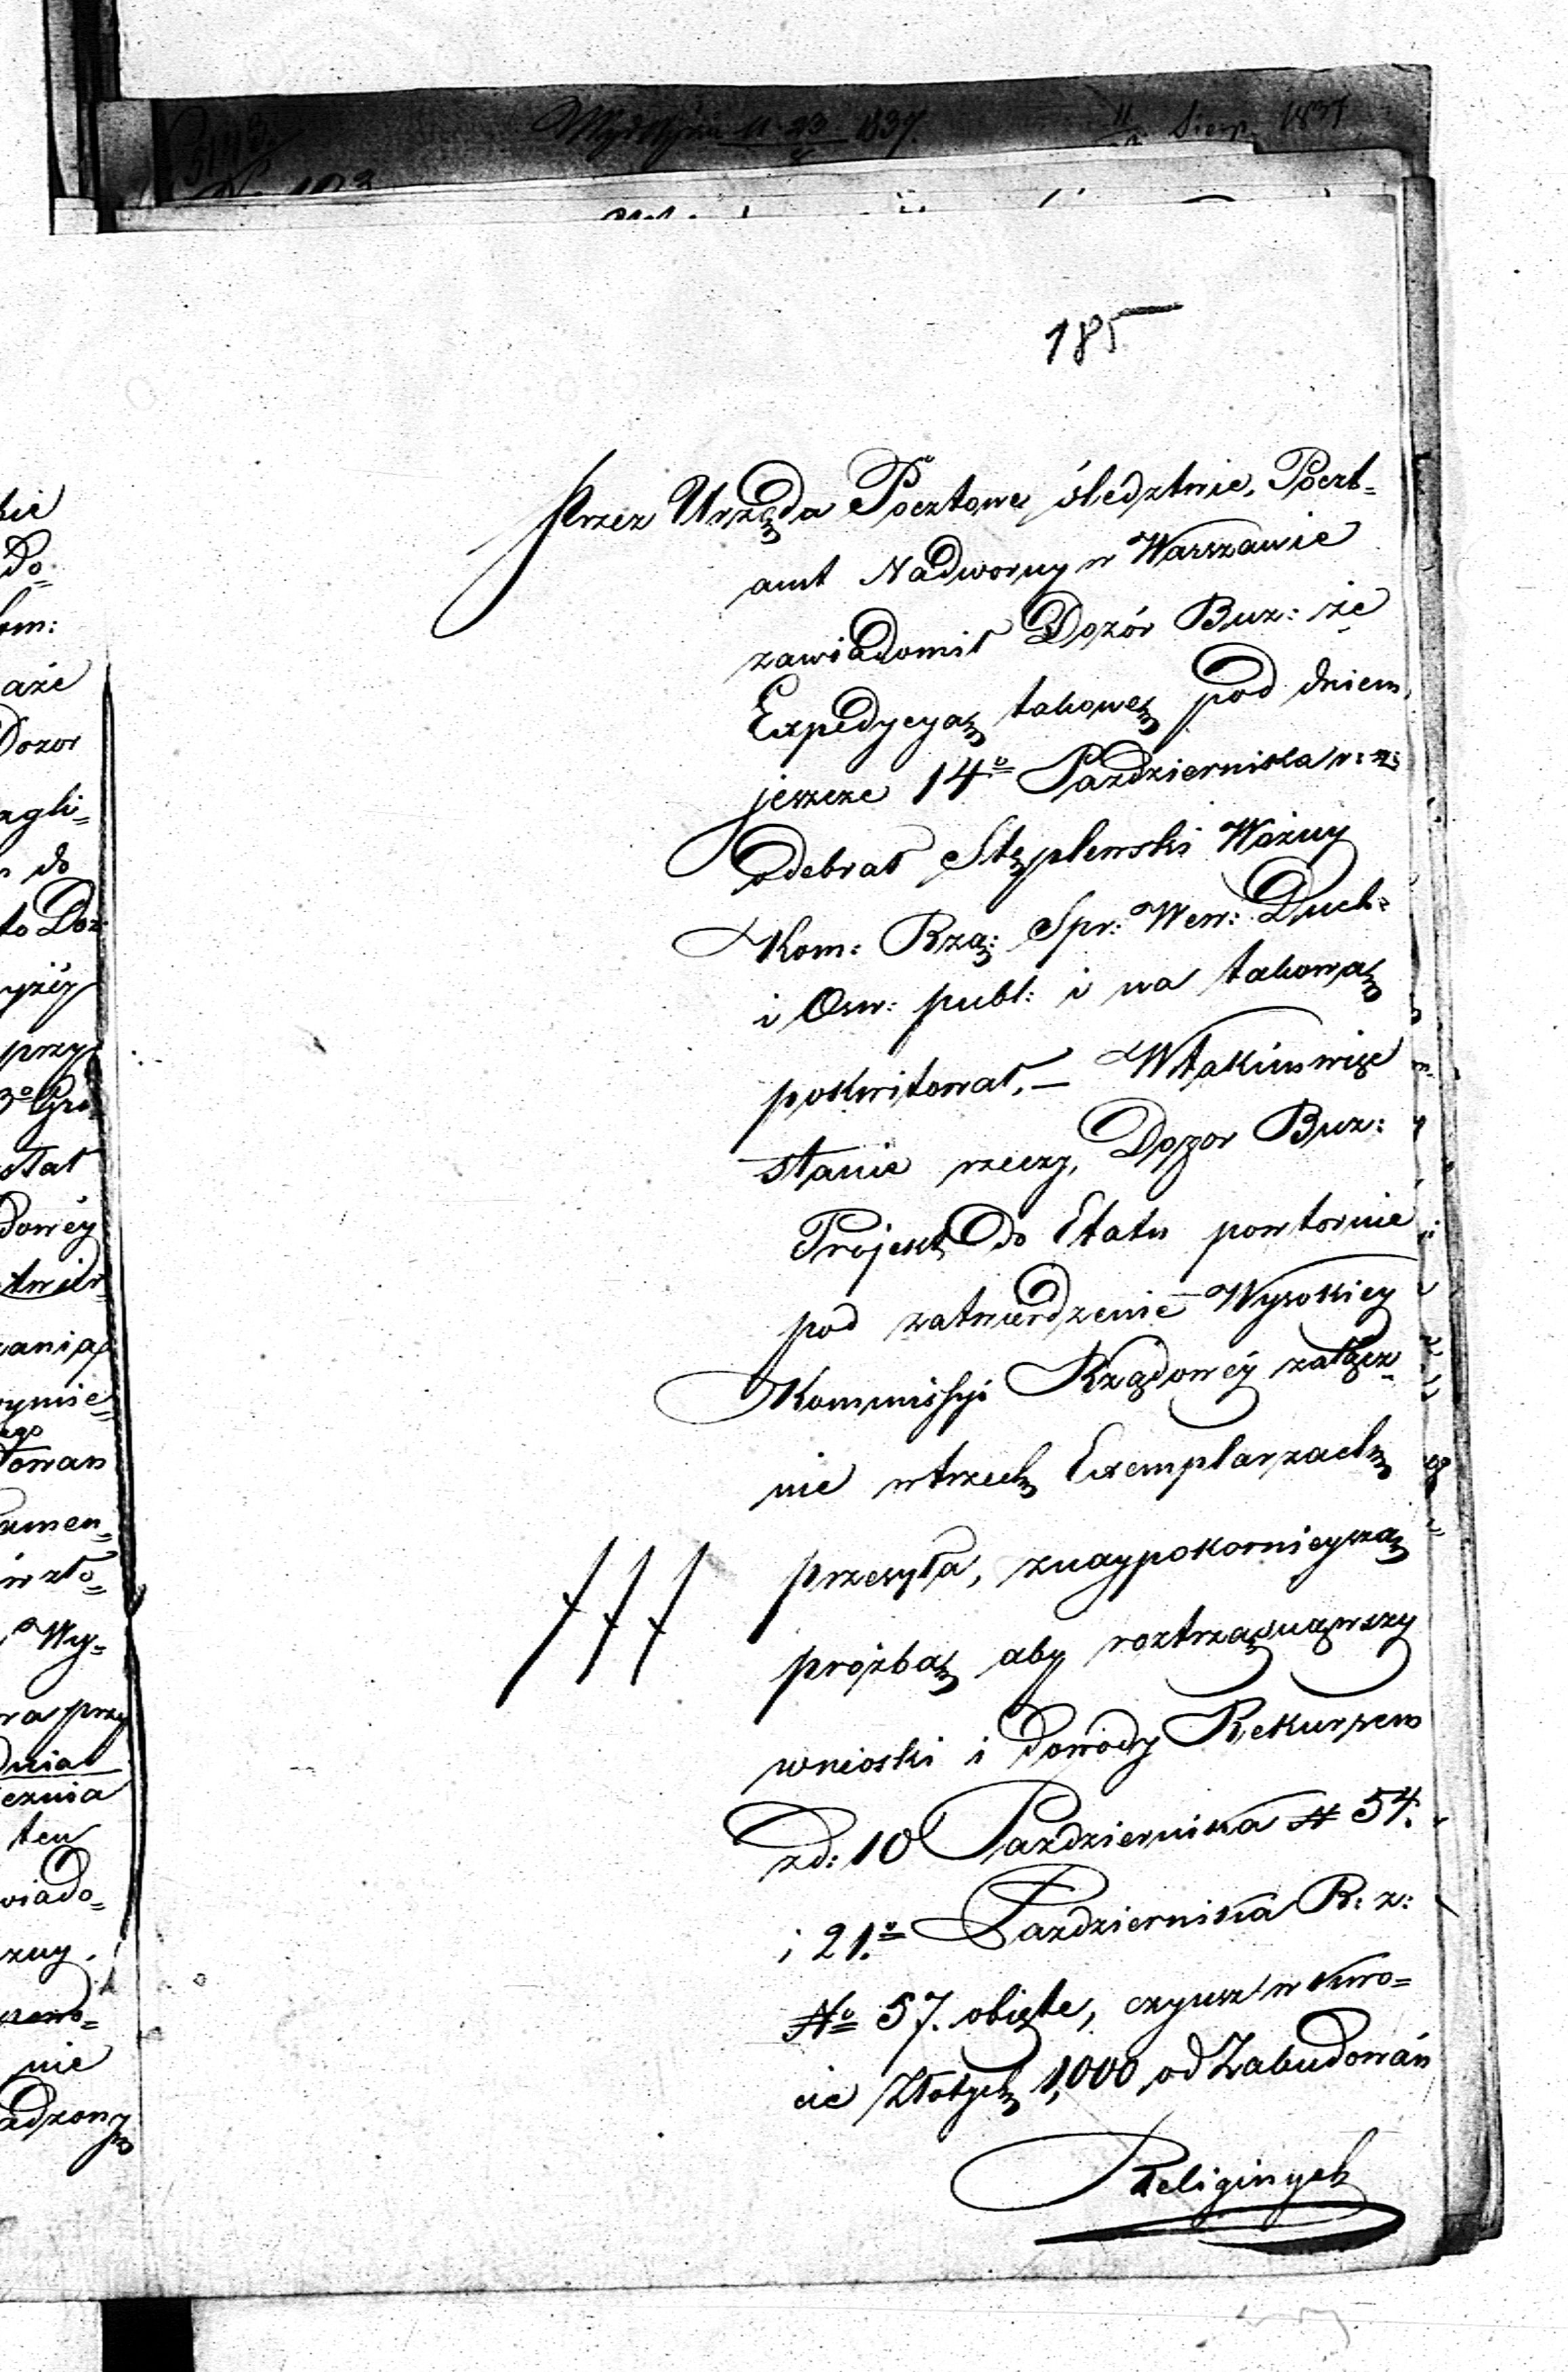 185
Przez Urzęda Pocztowe śledztwie, Poczt-
amt Nadworny w Warszawie
zawiadomił Dozór Buz: że
Expedycyą takowę pod dniem
jeszcze 14º Pazdziernika r: z:
odebrał Stęplewski Wożny
Kom: Rzą: Spr: Wew: Duch:
i Osw: publ: i na takową
pokwitował, — Wtakim więc
stanie rzeczy, Dozor Buz:
Projekt do Etatu powtornie
pod zatwierdzenie Wysokiey
Kommissyi Rządowéy załącz-
nie wtrzech Exemplarzach
przesyła, znaypokornieyszą
prożbą aby roztrząsnąwszy
wnioski i dowody Rekursem
zd: 10 Pazdziernika N 54.
i 21.º Pazdziernika R: z:
Nº 57. obięte, czynsz w kwo-
cie Złotych 1,000 od Zabudowań
Religinych
kie
Do=
om:
aże
Dozor
zgli=
do
to Doz:
yżéy
przy
3º
stał
dowéy
ania
wymie=
ego
towan
umen=
Wy=
ra przy
dniał
ten
wiado=
nie
adzony
1837.
Sierp. 1837